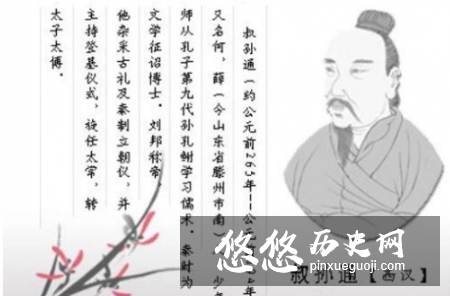 叔孙通（约公元前263年--公元
又名何，薛（今山东省滕州市南）
师从孔子第九代孙孔鲋学习儒术．秦时为
文学征诏博士．刘邦称帝，
他杂采古礼及秦制立朝仪，并
主持登基仪式，旋任太常，转
太子太博．
叔孙通【西汉】
悠悠历史网